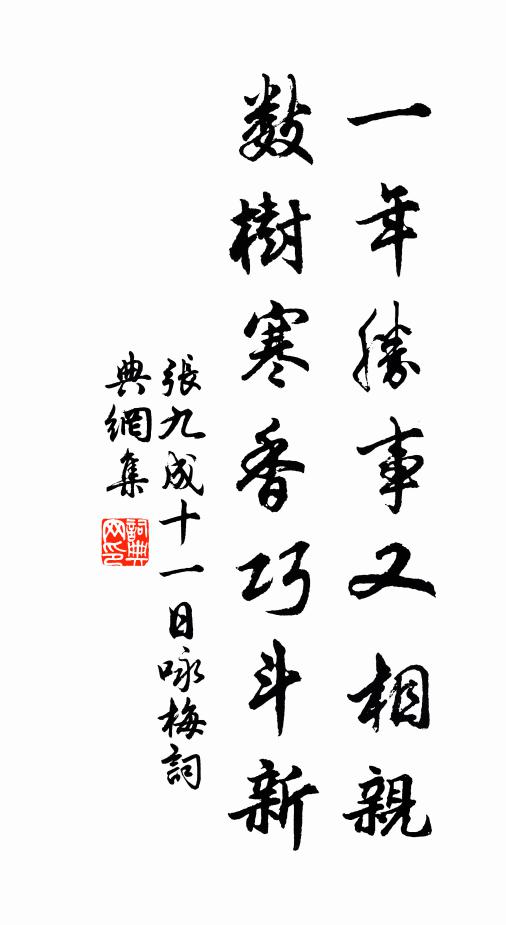 一年勝事又相親
數樹寒香巧斗新
張九成十一日咏梅詞
典網集
詞典
网印